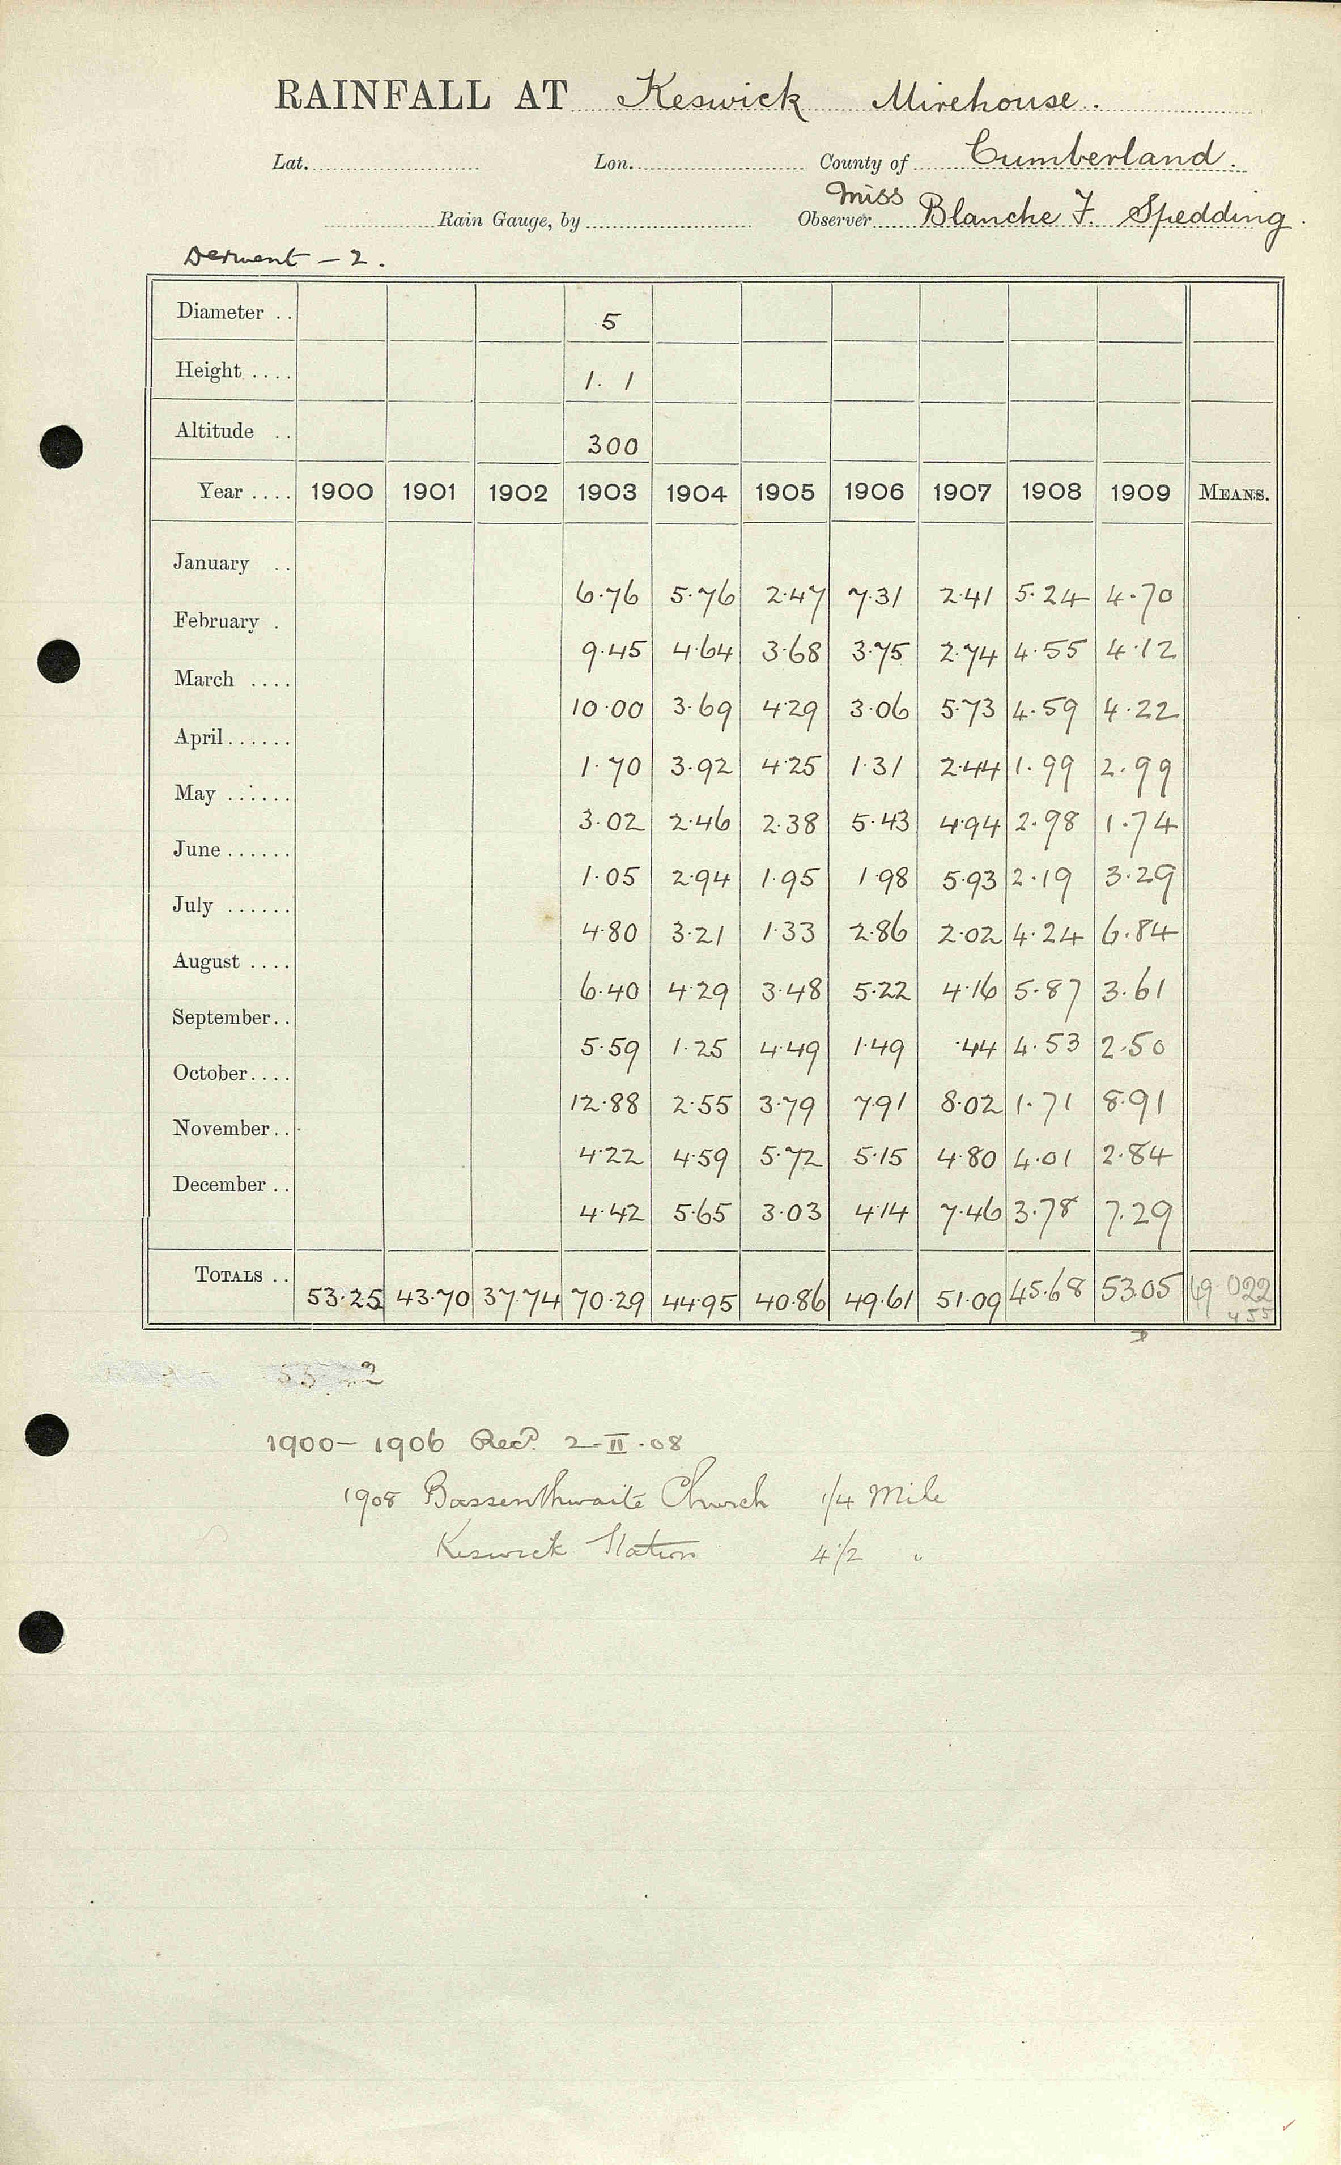 RAINFALL AT Keswick Mirehouse.
Lat. Lon. County of Cumberland.
Rain Gauge, by Observer Miss Blanche F. Spedding.
Derwent - 2.
Diameter .. 5
Height .... 1. 1
Altitude .. 300
Year .... 1900 1901 1902 1903 1904 1905 1906 1907 1908 1909 MEANS.
January .. 6.76 5.76 2.47 7.31 2.41 5.24 4.70
February . 9.45 4.64 3.68 3.75 2.74 4.55 4.12
March .... 10.00 3.69 4.29 3.06 5.73 4.59 4.22
April...... 1.70 3.92 4.25 1.31 2.44 1.99 2.99
May ...... 3.02 2.46 2.38 5.43 4.94 2.98 1.74
June...... 1.05 2.94 1.95 1.98 5.93 2.19 3.29
July ...... 4.80 3.21 1.33 2.86 2.02 4.24 6.84
August .... 6.40 4.29 3.48 5.22 4.16 5.87 3.61
September.. 5.59 1.25 4.49 1.49 .44 4.53 2.50
October.... 12.88 2.55 3.79 7.91 8.02 1.71 8.91
November.. 4.22 4.59 5.72 5.15 4.80 4.01 2.84
December .. 4.42 5.65 3.03 4.14 7.46 3.78 7.29
TOTALS .. 53.25 43.70 37.74 70.29 44.95 40.86 49.61 51.09 45.68 53.05 49.022
455
1900- 1906 Recd. 2-II.08
1908 Bassenthwaite Church 1/4 Mile
Keswick Station 4 1/2 "